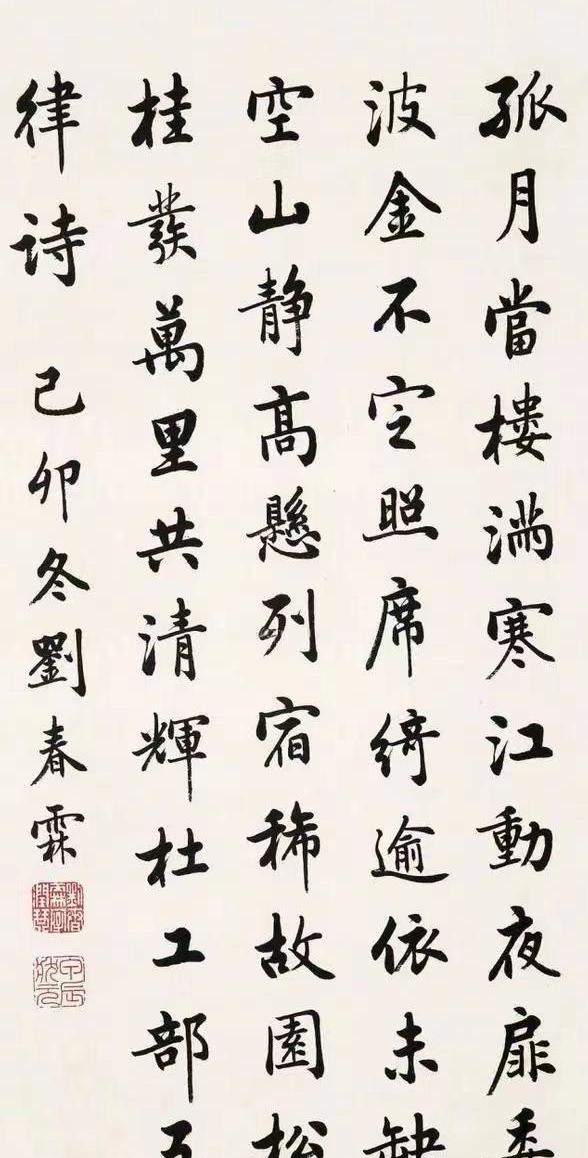 孤月當樓滿寒江動夜扉委
波金不定照席綺逾依未缺
空山静髙懸列宿稀故園松
桂發萬里共清輝杜工部五
律詩 己卯冬劉春霖
甲辰狀元